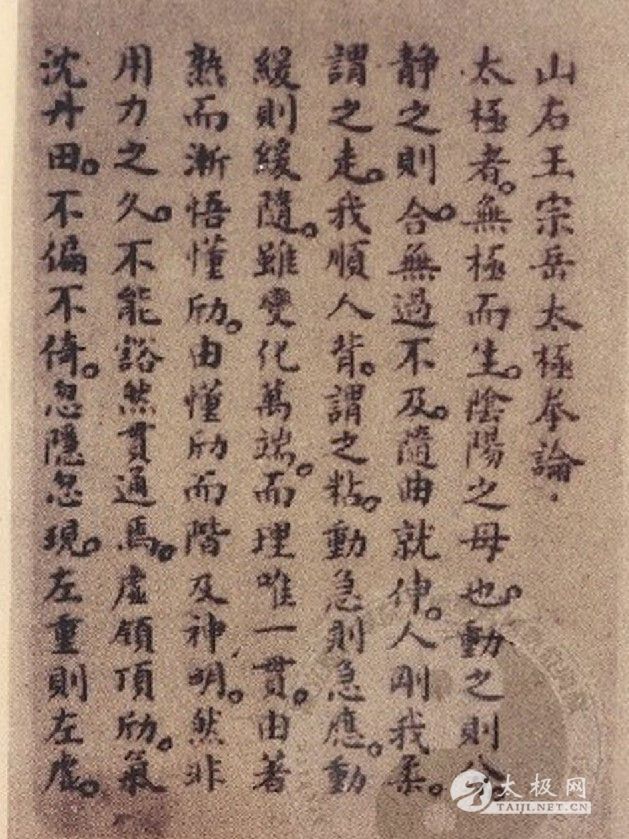 山右王宗岳太極拳論.
太極者。無極而生。陰陽之母也。動之則分
静之則合。無過不及。隨曲就伸。人剛我柔。
謂之走。我順人背。謂之粘。動急則急應。動
緩則緩隨。雖變化萬端。而理唯一貫。由著
熟而漸悟懂劤。由懂劤而階及神明。然非
用力之久。不能豁然貫通焉。虛領頂劤。氣
沈丹田。不偏不倚。忽隱忽現。左重則左虛。
太极网
TAIJI.NET.CN